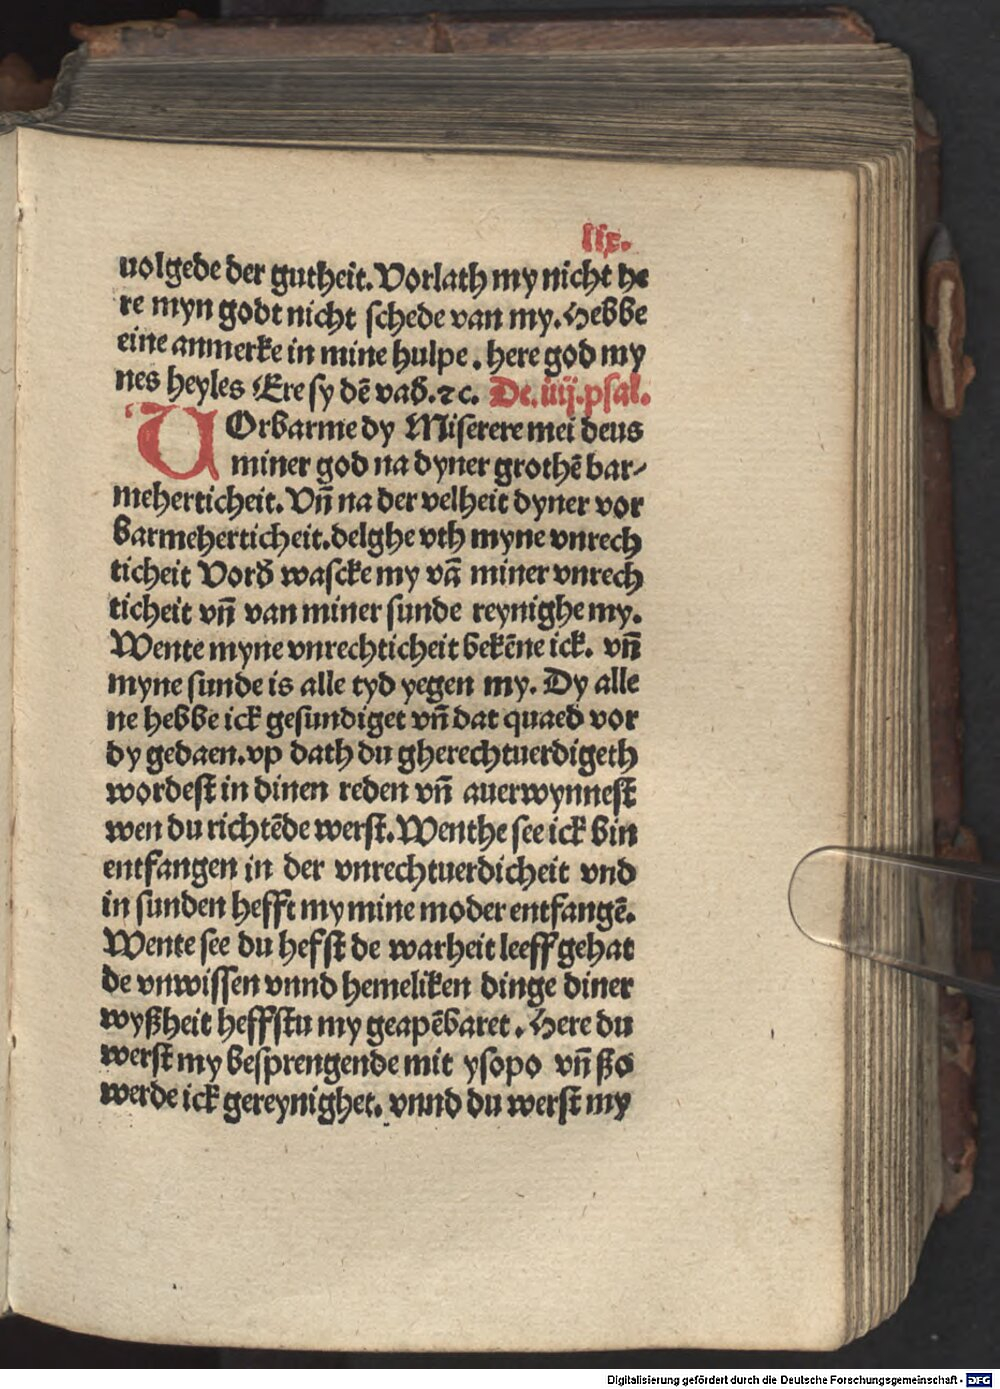 lix.
uolgede der gutheit. Vorlath my nicht he
re myn godt nicht schede van my. Hebbe
eine anmerke in mine hulpe. here god my
nes heyles Ere sy dē vad. ⁊c. De. iiij. psal.
VOrbarme dy Miserere mei deus
miner god na dyner grothē bar⸗
meherticheit. Vñ na der velheit dyner vor
barmeherticheit. delghe vth myne vnrech
ticheit Vord wascke my vā miner vnrech
ticheit vñ van miner sunde reynighe my.
Wente myne vnrechticheit bekēne ick. vñ
myne sunde is alle tyd yegen my. Dy alle
ne hebbe ick gesundiget vñ dat quaed vor
dy gedaen. vp dath du gherechtuerdigeth
wordest in dinen reden vñ auerwynnest
wen du richtēde werst. Wenthe see ick bin
entfangen in der vnrechtuerdicheit vnd
in sunden hefft my mine moder entfangē.
Wente see du hefst de warheit leeff gehat
de vnwissen vnnd hemeliken dinge diner
wyßheit heffstu my geapēbaret. Here du
werst my besprengende mit ysopo vñ ßo
werde ick gereynighet. vnnd du werst my
Digitalisierung gefördert durch die Deutsche Forschungsgemeinschaft - DFG